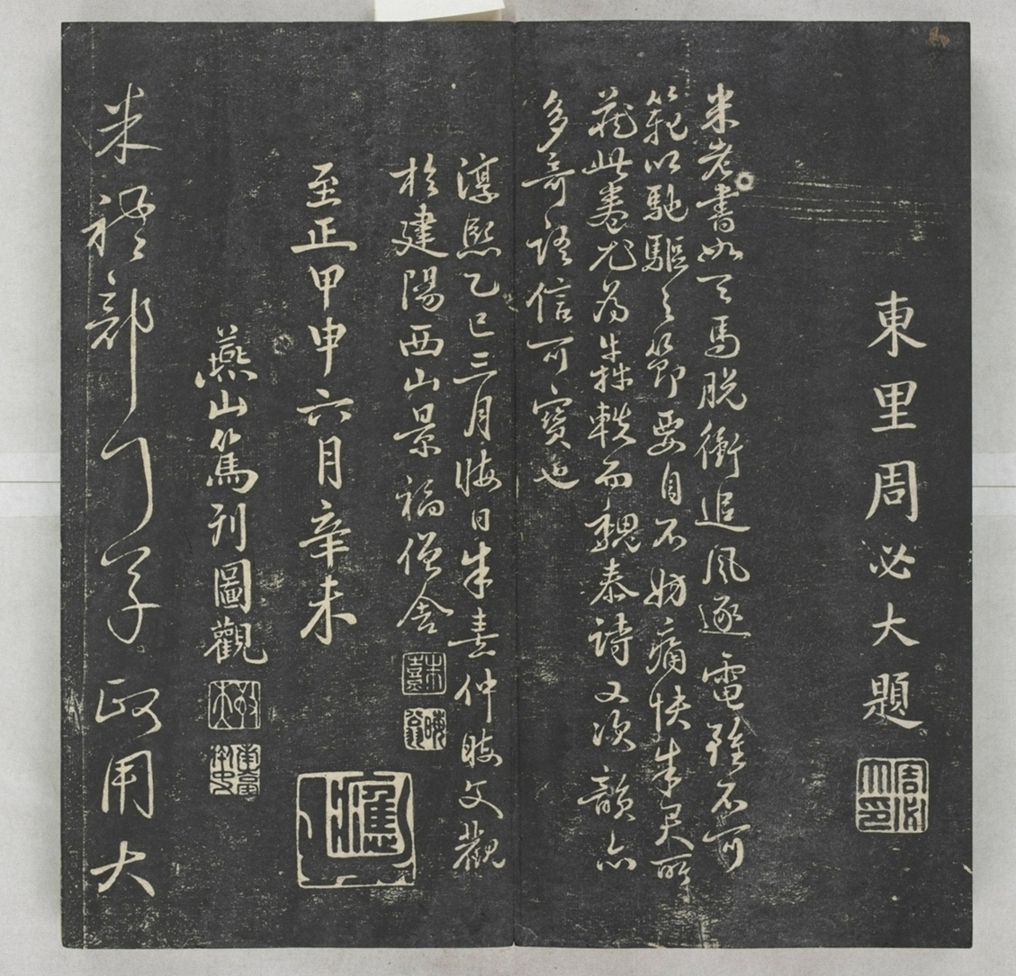 東里周必大題
周必大印
米老書如天馬脫銜追風逐電雖不可
範以馳驅之節要自不妨痛快朱君所
藏此卷尤為犇軼而魏泰詩又次韻亦
多奇語信可寶也
淳熙乙巳三月晦日朱熹仲晦父觀
於建陽西山景福僧舍
朱熹
晦翁
至正甲申六月辛未
燕山篤列圖觀
米禮部行草政用大